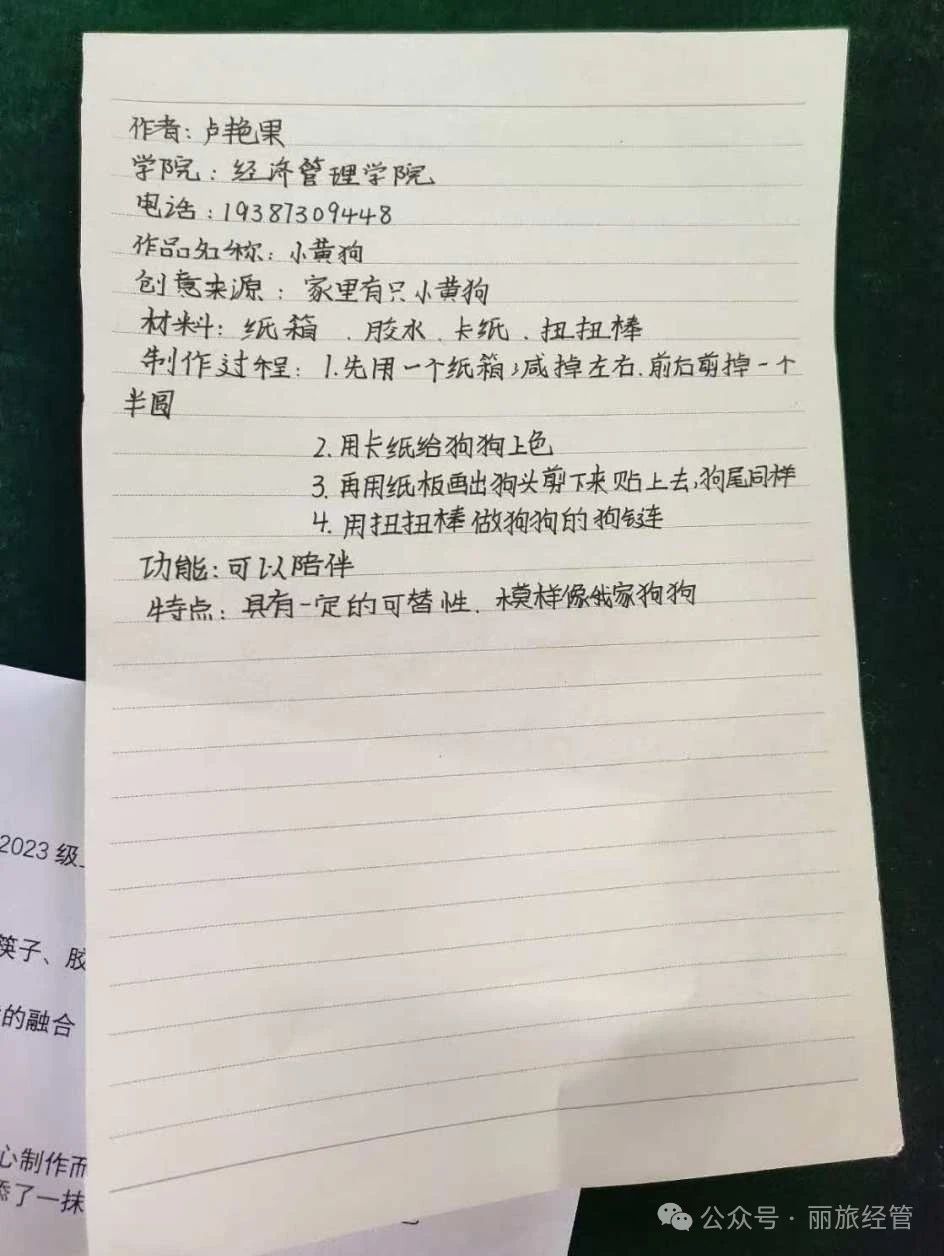 作者：卢艳果
学院：经济管理学院
电话：19387309448
作品名称：小黄狗
创意来源：家里有只小黄狗
材料：纸箱、胶水、卡纸、扭扭棒
制作过程：1.先用一个纸箱，减掉左右.前后剪掉一个
半圆
2.用卡纸给狗狗上色
3.再用纸板画出狗头剪下来贴上去，狗尾同样
4.用扭扭棒做狗狗的狗链
功能：可以陪伴
特点：具有一定的可替性.模样像我家狗狗
2023级
筷子、胶
的融合
心制作而
添了一抹
公众号·丽旅经管